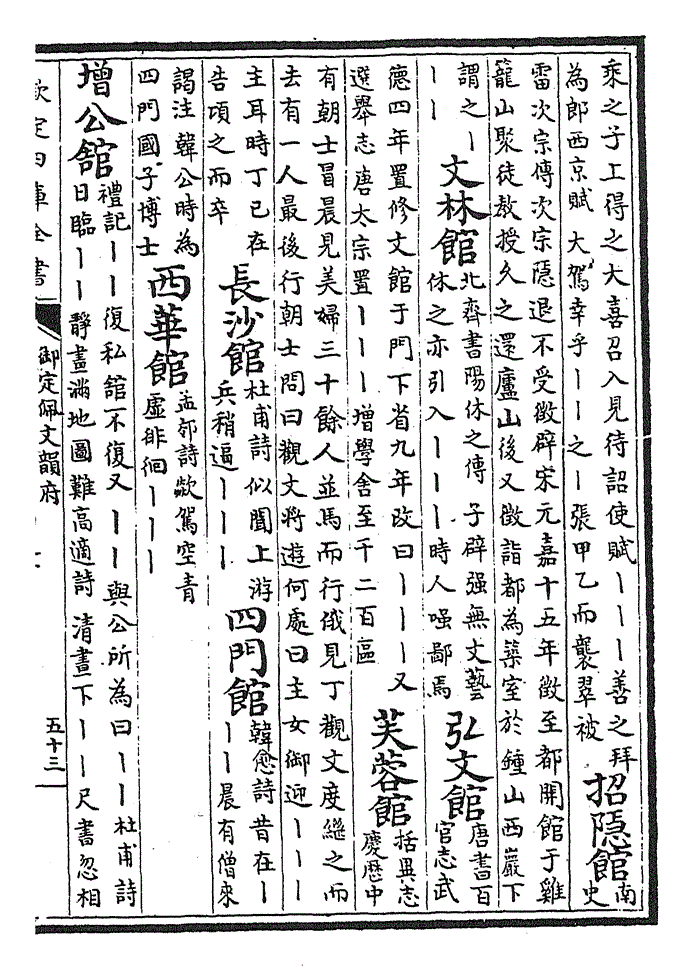 乘之子上得之大喜召入見待詔使賦｜｜｜善之拜
為郎西京賦大駕幸乎｜｜之｜張甲乙而襲翠被
招隱館
南
史
雷次宗傳次宗隱退不受徵辟宋元嘉十五年徵至都開館于雞
籠山聚徒教授久之還廬山後又徵詣都為築室於鍾山西巖下
謂之｜
｜｜
文林館
北齊書陽休之傳 子辟强無文藝
休之亦引入｜｜｜時人嗤鄙焉
弘文館
唐書百
官志武
德四年置修文館于門下省九年改曰｜｜｜又
選舉志唐太宗置｜｜｜增學舍至千二百區
芙蓉館
括異志
慶歷中
有朝士冒晨見美婦三十餘人並馬而行俄見丁觀文度繼之而
去有一人最後行朝士問曰觀文將遊何處曰主女御迎｜｜｜
主耳時丁已在
告頃之而卒
長沙館
杜甫詩似聞上游
兵稍逼｜｜｜
四門館
韓愈詩昔在｜
｜｜晨有僧來
謁注韓公時為
四門國子博士
西華館
孟郊詩歘駕空青
虛徘徊｜｜｜
增公館
禮記｜｜復私舘不復又｜｜與公所為曰｜｜杜甫詩
日臨｜｜靜畫滿地圖難高適詩 清晝下｜｜尺書忽相
欽定四庫全書
御定佩文韻府
五十三